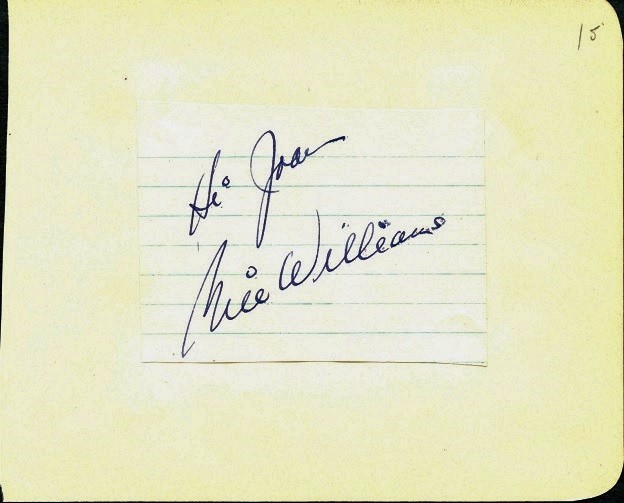 15
Hi Joan
Williams